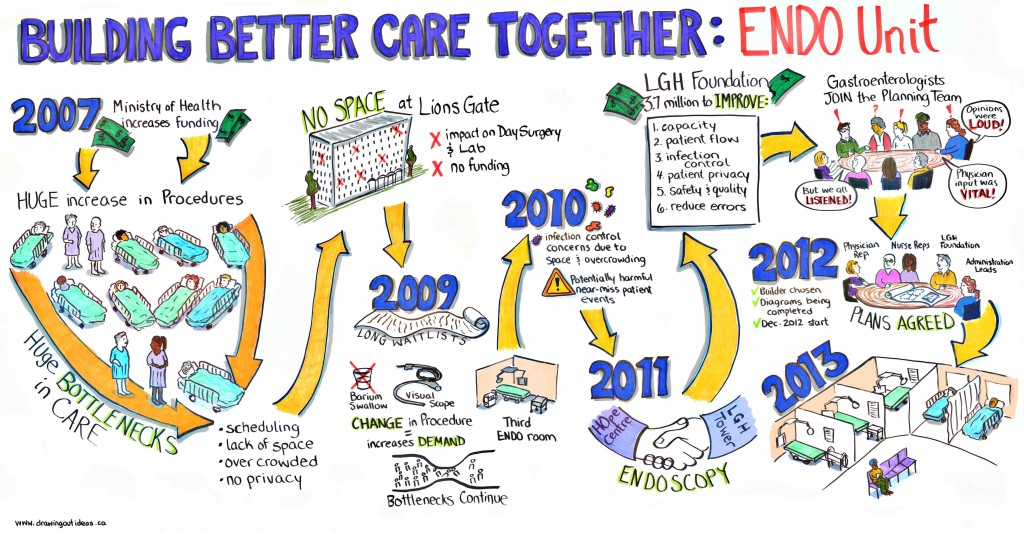 BUILDING BETTER CARE TOGETHER: ENDO Unit
2007
Ministry of Health
increases funding
HUGE increase in Procedures
Huge BOTTLENECKS
in CARE
• scheduling
• lack of space
• over crowded
• no privacy
NO SPACE at Lions Gate
X impact on Day Surgery
& Lab
X no funding
2009
LONG WAITLISTS
Barium
Swallow
Visual
Scope
CHANGE in Procedure
=
increases DEMAND
Bottlenecks Continue
Third
ENDO room
2010
infection control
concerns due to
space & overcrowding
!
Potentially harmful
near-miss patient
events
2011
Hope
Centre
LGH
Tower
ENDOSCOPY
LGH Foundation
$3.7 million to IMPROVE:
1. capacity
2. patient flow
3. infection
control
4. patient privacy
5. Safety & quality
6. reduce errors
Gastroenterologists
JOIN the Planning Team
! ! ! !
Opinions
were
LOUD!
But we all
LISTENED!
Physician
input was
VITAL!
2012
Physician
Rep.
Nurse Reps
LGH
Foundation
Administration
Leads
✓ Builder chosen
✓ Diagrams being
completed
✓ Dec. 2012 start
PLANS AGREED
2013
www.drawingoutideas.ca